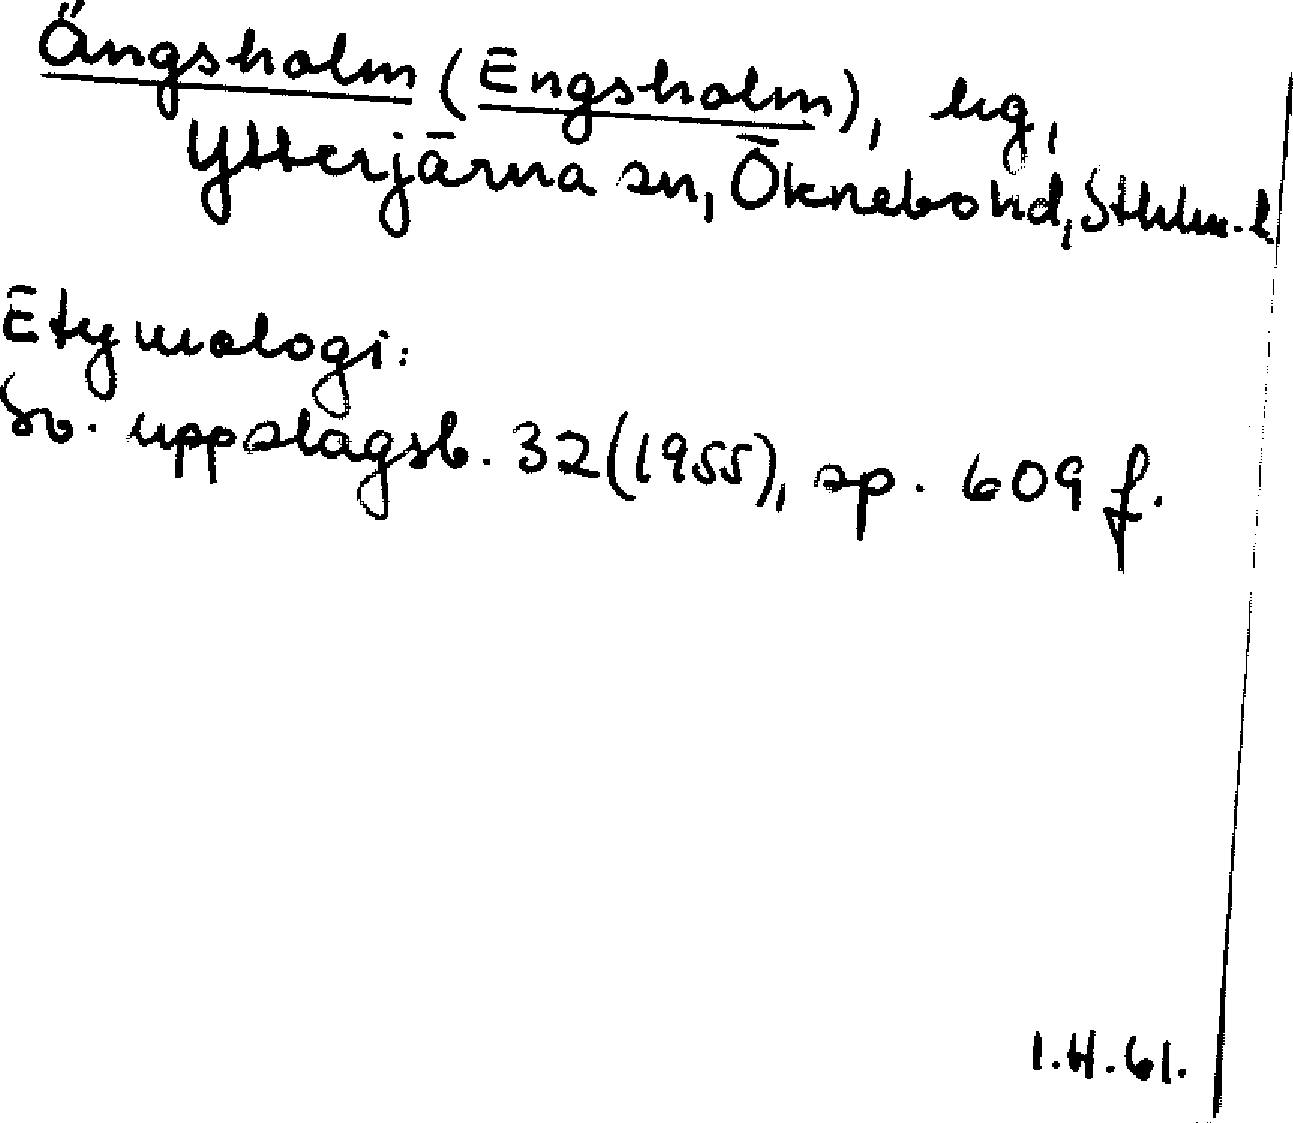 Ängsholm (Engsholm), hg,
Ytterjärna sn, Öknebo hd, Sthlm. l
Etymologi:
Sv. uppslagsb. 32(1955), sp. 609 f.
I.H.61.